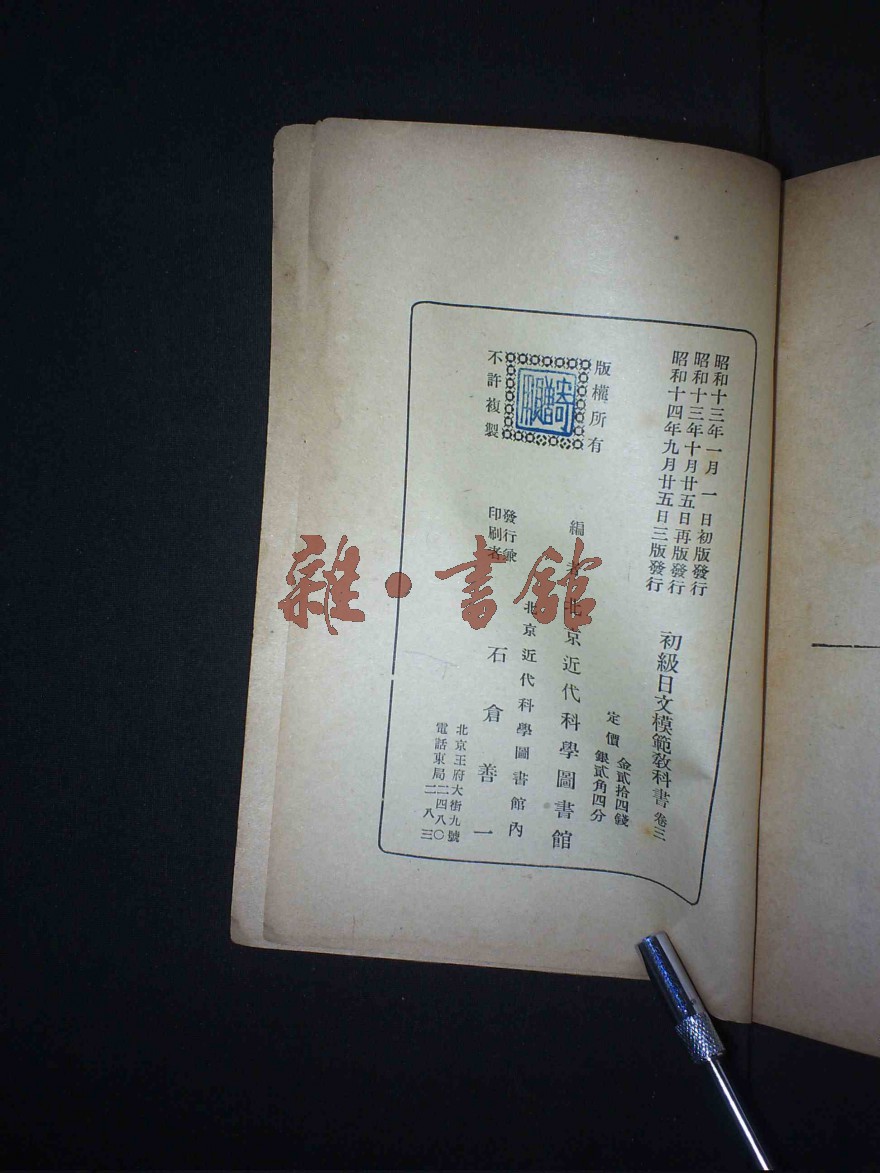 昭和十三年一月一日初版發行
昭和十三年十月廿五日再版發行
昭和十四年九月廿五日三版發行
初級日文模範教科書 卷三
定價 金貳拾四錢
銀貳角四分
版權所有
不許複製
編者 北京近代科學圖書館
發行兼
印刷者
北京近代科學圖書館內
石倉善一
北京王府大街九號
電話東局二四八〇
二八三
雜·書館